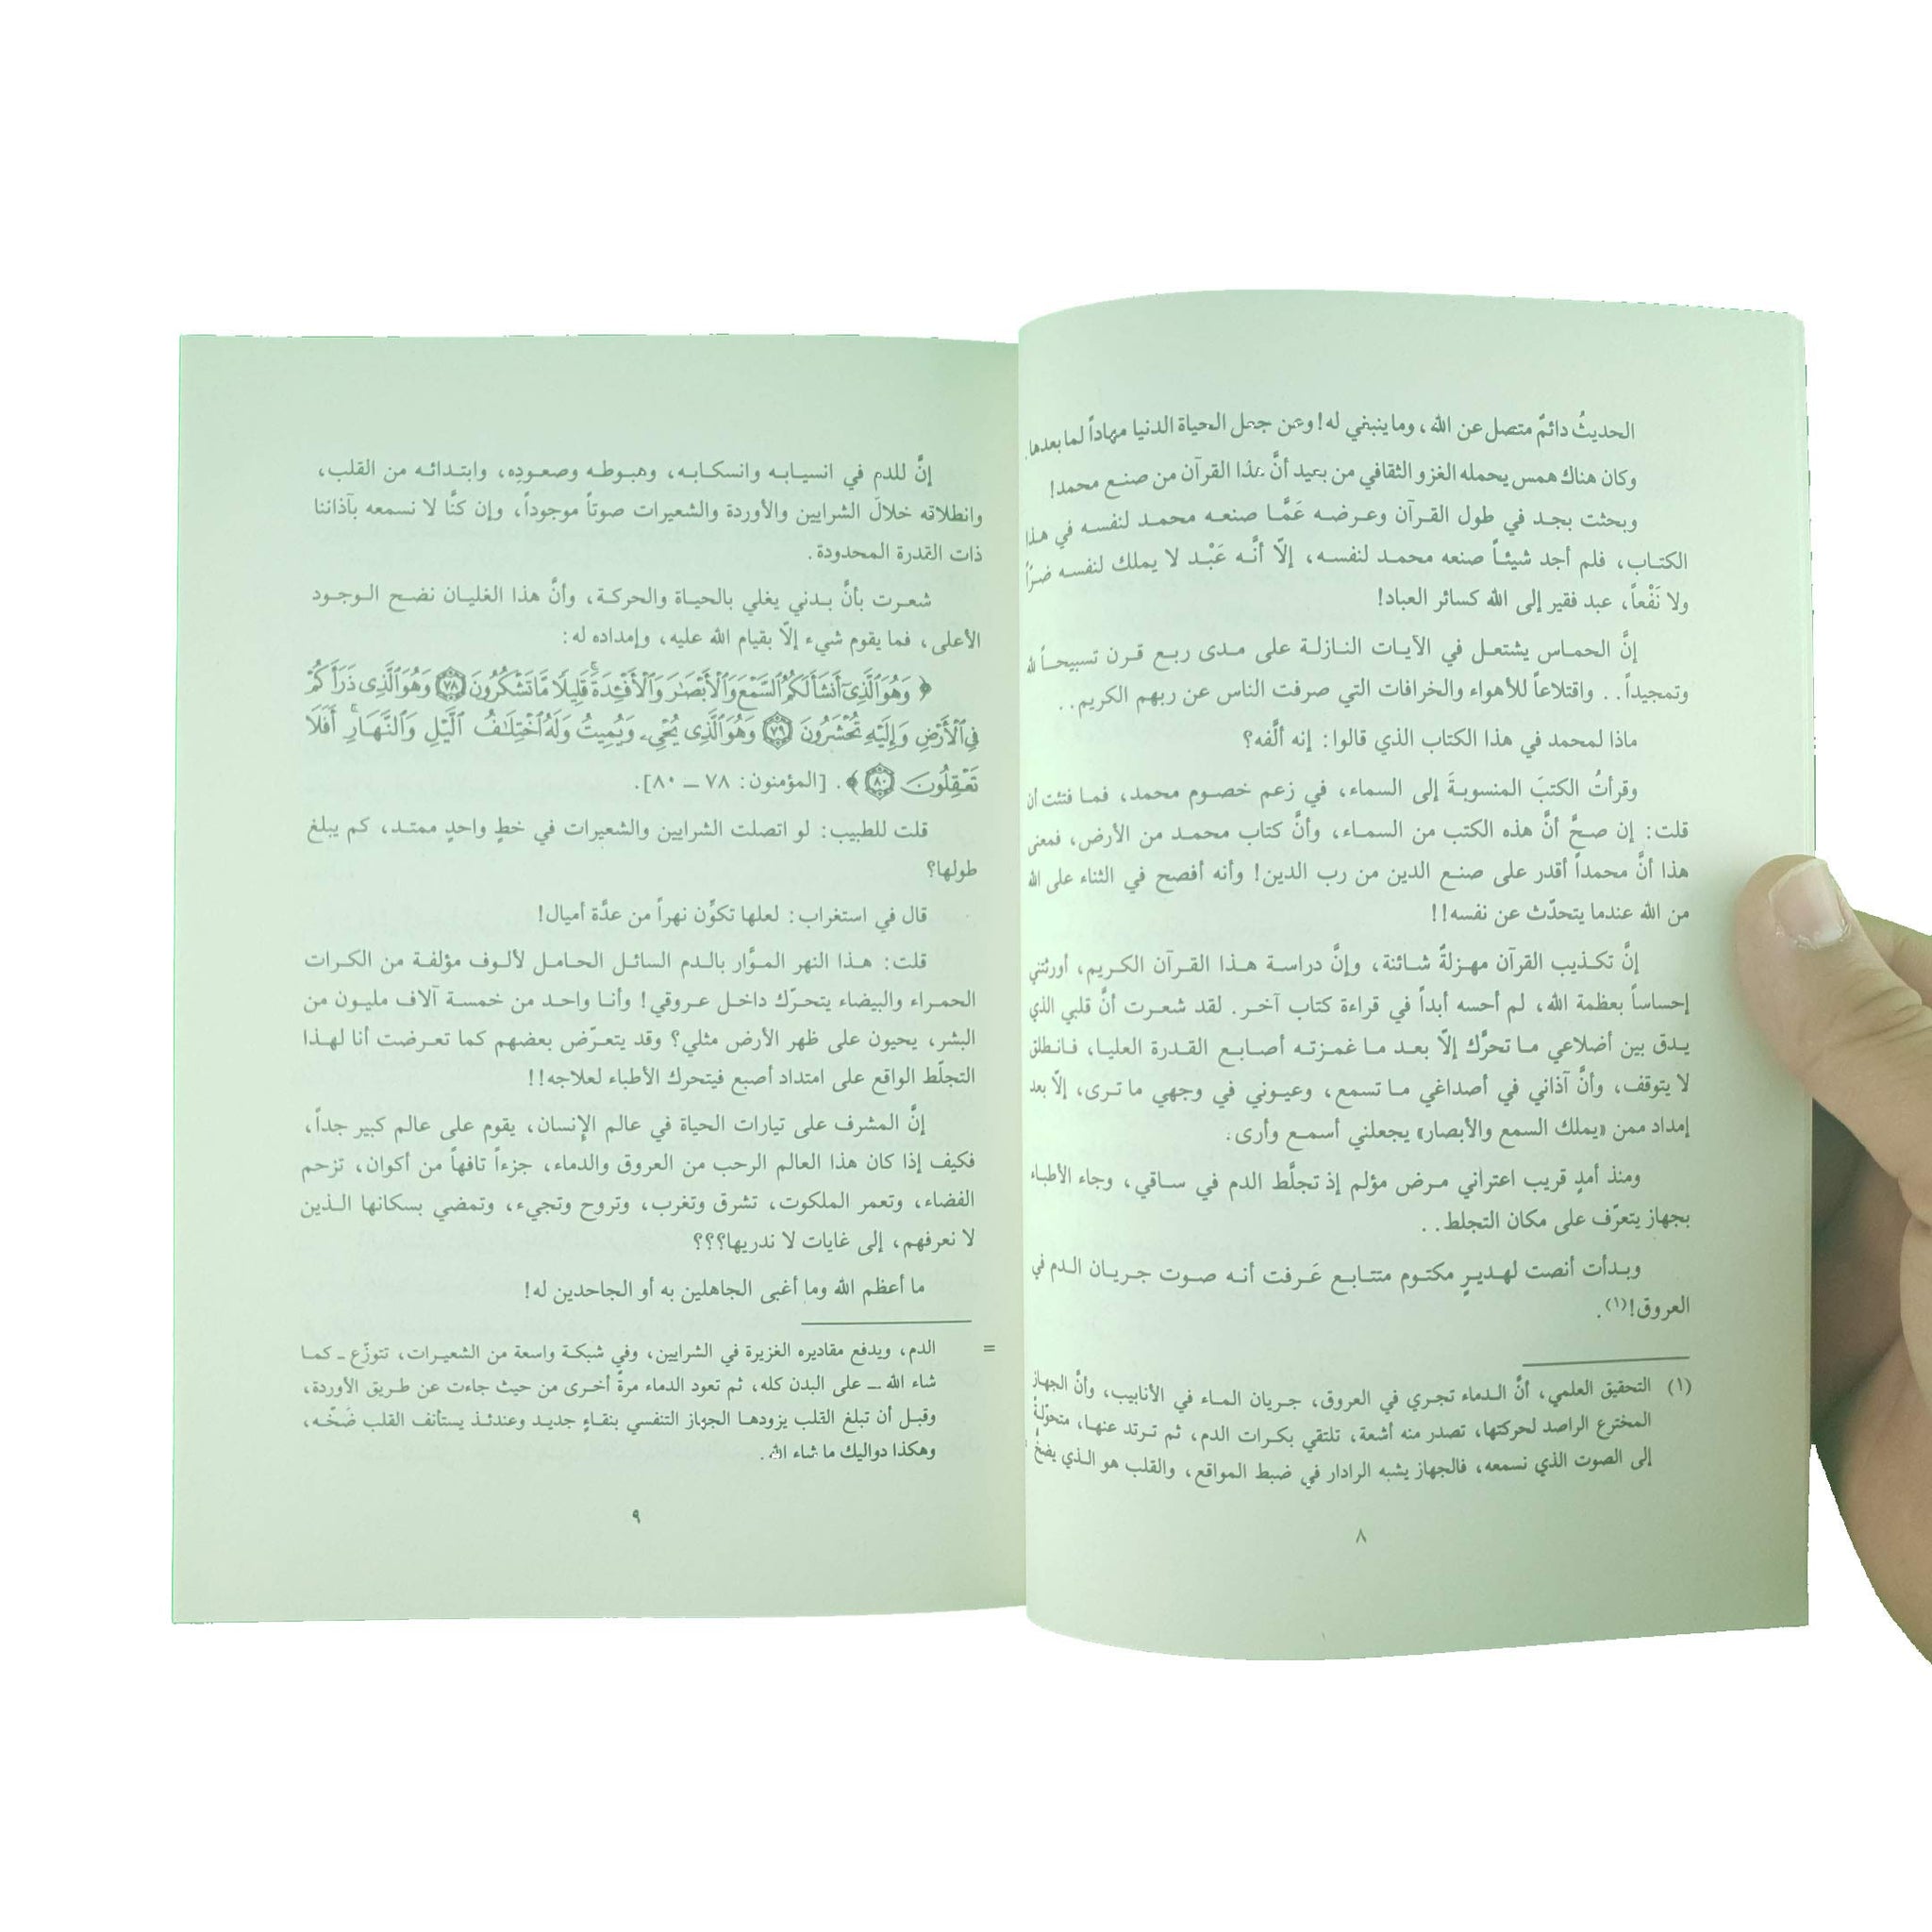 الحديثُ دائمٌ متصل عن الله، وما ينبغي له! وعن جعل الحياة الدنيا مهاداً لما بعدها.
وكان هناك همس يحمله الغزو الثقافي من بعيد أنَّ هذا القرآن من صنع محمد!
وبحثت بجد في طول القرآن وعرضه عَمَّا صنعه محمد لنفسه في هذا
الكتاب، فلم أجد شيئاً صنعه محمد لنفسه، إلّا أنَّه عَبْد لا يملك لنفسه ضرّاً
ولا نَفْعاً، عبد فقير إلى الله كسائر العباد!
إنَّ الحماس يشتعل في الآيات النازلة على مدى ربع قرن تسبيحاً لله
وتمجيداً.. واقتلاعاً للأهواء والخرافات التي صرفت الناس عن ربهم الكريم..
ماذا لمحمد في هذا الكتاب الذي قالوا: إنه ألَّفه؟
وقرأتُ الكتبَ المنسوبةَ إلى السماء، في زعم خصوم محمد، فما فتئت أن
قلت: إن صحَّ أنَّ هذه الكتب من السماء، وأنَّ كتاب محمد من الأرض، فمعنى
هذا أنَّ محمداً أقدر على صنع الدين من رب الدين! وأنه أفصح في الثناء على الله
من الله عندما يتحدّث عن نفسه!!
إنَّ تكذيب القرآن مهزلةٌ شائنة، وإنَّ دراسة هذا القرآن الكريم، أورثتني
إحساساً بعظمة الله، لم أحسه أبداً في قراءة كتاب آخر. لقد شعرت أنَّ قلبي الذي
يدق بين أضلاعي ما تحرَّك إلّا بعد ما غمزته أصابع القدرة العليا، فانطلق
لا يتوقف، وأنَّ آذاني في أصداغي ما تسمع، وعيوني في وجهي ما ترى، إلّا بعد
إمداد ممن «يملك السمع والأبصار» يجعلني أسمع وأرى.
ومنذ أمدٍ قريب اعتراني مرض مؤلم إذ تجلَّط الدم في ساقي، وجاء الأطباء
بجهاز يتعرّف على مكان التجلط..
وبدأت أنصت لهديرٍ مكتوم متتابع عَرفت أنه صوت جريان الدم في
العروق!(١).
(١) التحقيق العلمي، أنَّ الدماء تجري في العروق، جريان الماء في الأنابيب، وأنَّ الجهاز
المخترع الراصد لحركتها، تصدر منه أشعة، تلتقي بكرات الدم، ثم ترتد عنها، متحوّلةً
إلى الصوت الذي نسمعه، فالجهاز يشبه الرادار في ضبط المواقع، والقلب هو الذي يضخّ =
٨
إنَّ للدم في انسيابه وانسكابه، وهبوطه وصعوده، وابتدائه من القلب،
وانطلاقه خلالَ الشرايين والأوردة والشعيرات صوتاً موجوداً، وإن كنَّا لا نسمعه بآذاننا
ذات القدرة المحدودة.
شعرت بأنَّ بدني يغلي بالحياة والحركة، وأنَّ هذا الغليان نضح الوجود
الأعلى، فما يقوم شيء إلّا بقيام الله عليه، وإمداده له:
﴿ وَهُوَ ٱلَّذِىٓ أَنشَأَ لَكُمُ ٱلسَّمْعَ وَٱلْأَبْصَٰرَ وَٱلْأَفْـِٔدَةَ ۚ قَلِيلًا مَّا تَشْكُرُونَ ٧٨ وَهُوَ ٱلَّذِى ذَرَأَكُمْ
فِى ٱلْأَرْضِ وَإِلَيْهِ تُحْشَرُونَ ٧٩ وَهُوَ ٱلَّذِى يُحْىِۦ وَيُمِيتُ وَلَهُ ٱخْتِلَٰفُ ٱلَّيْلِ وَٱلنَّهَارِ ۚ أَفَلَا
تَعْقِلُونَ ٨٠ ﴾. [المؤمنون: ٧٨ ـ ٨٠].
قلت للطبيب: لو اتصلت الشرايين والشعيرات في خطٍ واحدٍ ممتد، كم يبلغ
طولها؟
قال في استغراب: لعلها تكوِّن نهراً من عدَّة أميال!
قلت: هذا النهر الموَّار بالدم السائل الحامل لألوف مؤلفة من الكرات
الحمراء والبيضاء يتحرّك داخل عروقي! وأنا واحد من خمسة آلاف مليون من
البشر، يحيون على ظهر الأرض مثلي؟ وقد يتعرّض بعضهم كما تعرضت أنا لهذا
التجلّط الواقع على امتداد أصبع فيتحرك الأطباء لعلاجه!!
إنَّ المشرف على تيارات الحياة في عالم الإنسان، يقوم على عالم كبير جداً،
فكيف إذا كان هذا العالم الرحب من العروق والدماء، جزءاً تافهاً من أكوان، تزحم
الفضاء، وتعمر الملكوت، تشرق وتغرب، وتروح وتجيء، وتمضي بسكانها الذين
لا نعرفهم، إلى غايات لا ندريها؟؟؟
ما أعظم الله وما أغبى الجاهلين به أو الجاحدين له!
= الدم، ويدفع مقاديره الغزيرة في الشرايين، وفي شبكة واسعة من الشعيرات، تتوزّع ـ كما
شاء الله ـ على البدن كله، ثم تعود الدماء مرةً أخرى من حيث جاءت عن طريق الأوردة،
وقبل أن تبلغ القلب يزودها الجهاز التنفسي بنقاءٍ جديد وعندئذ يستأنف القلب ضَخّه،
وهكذا دواليك ما شاء الله.
٩